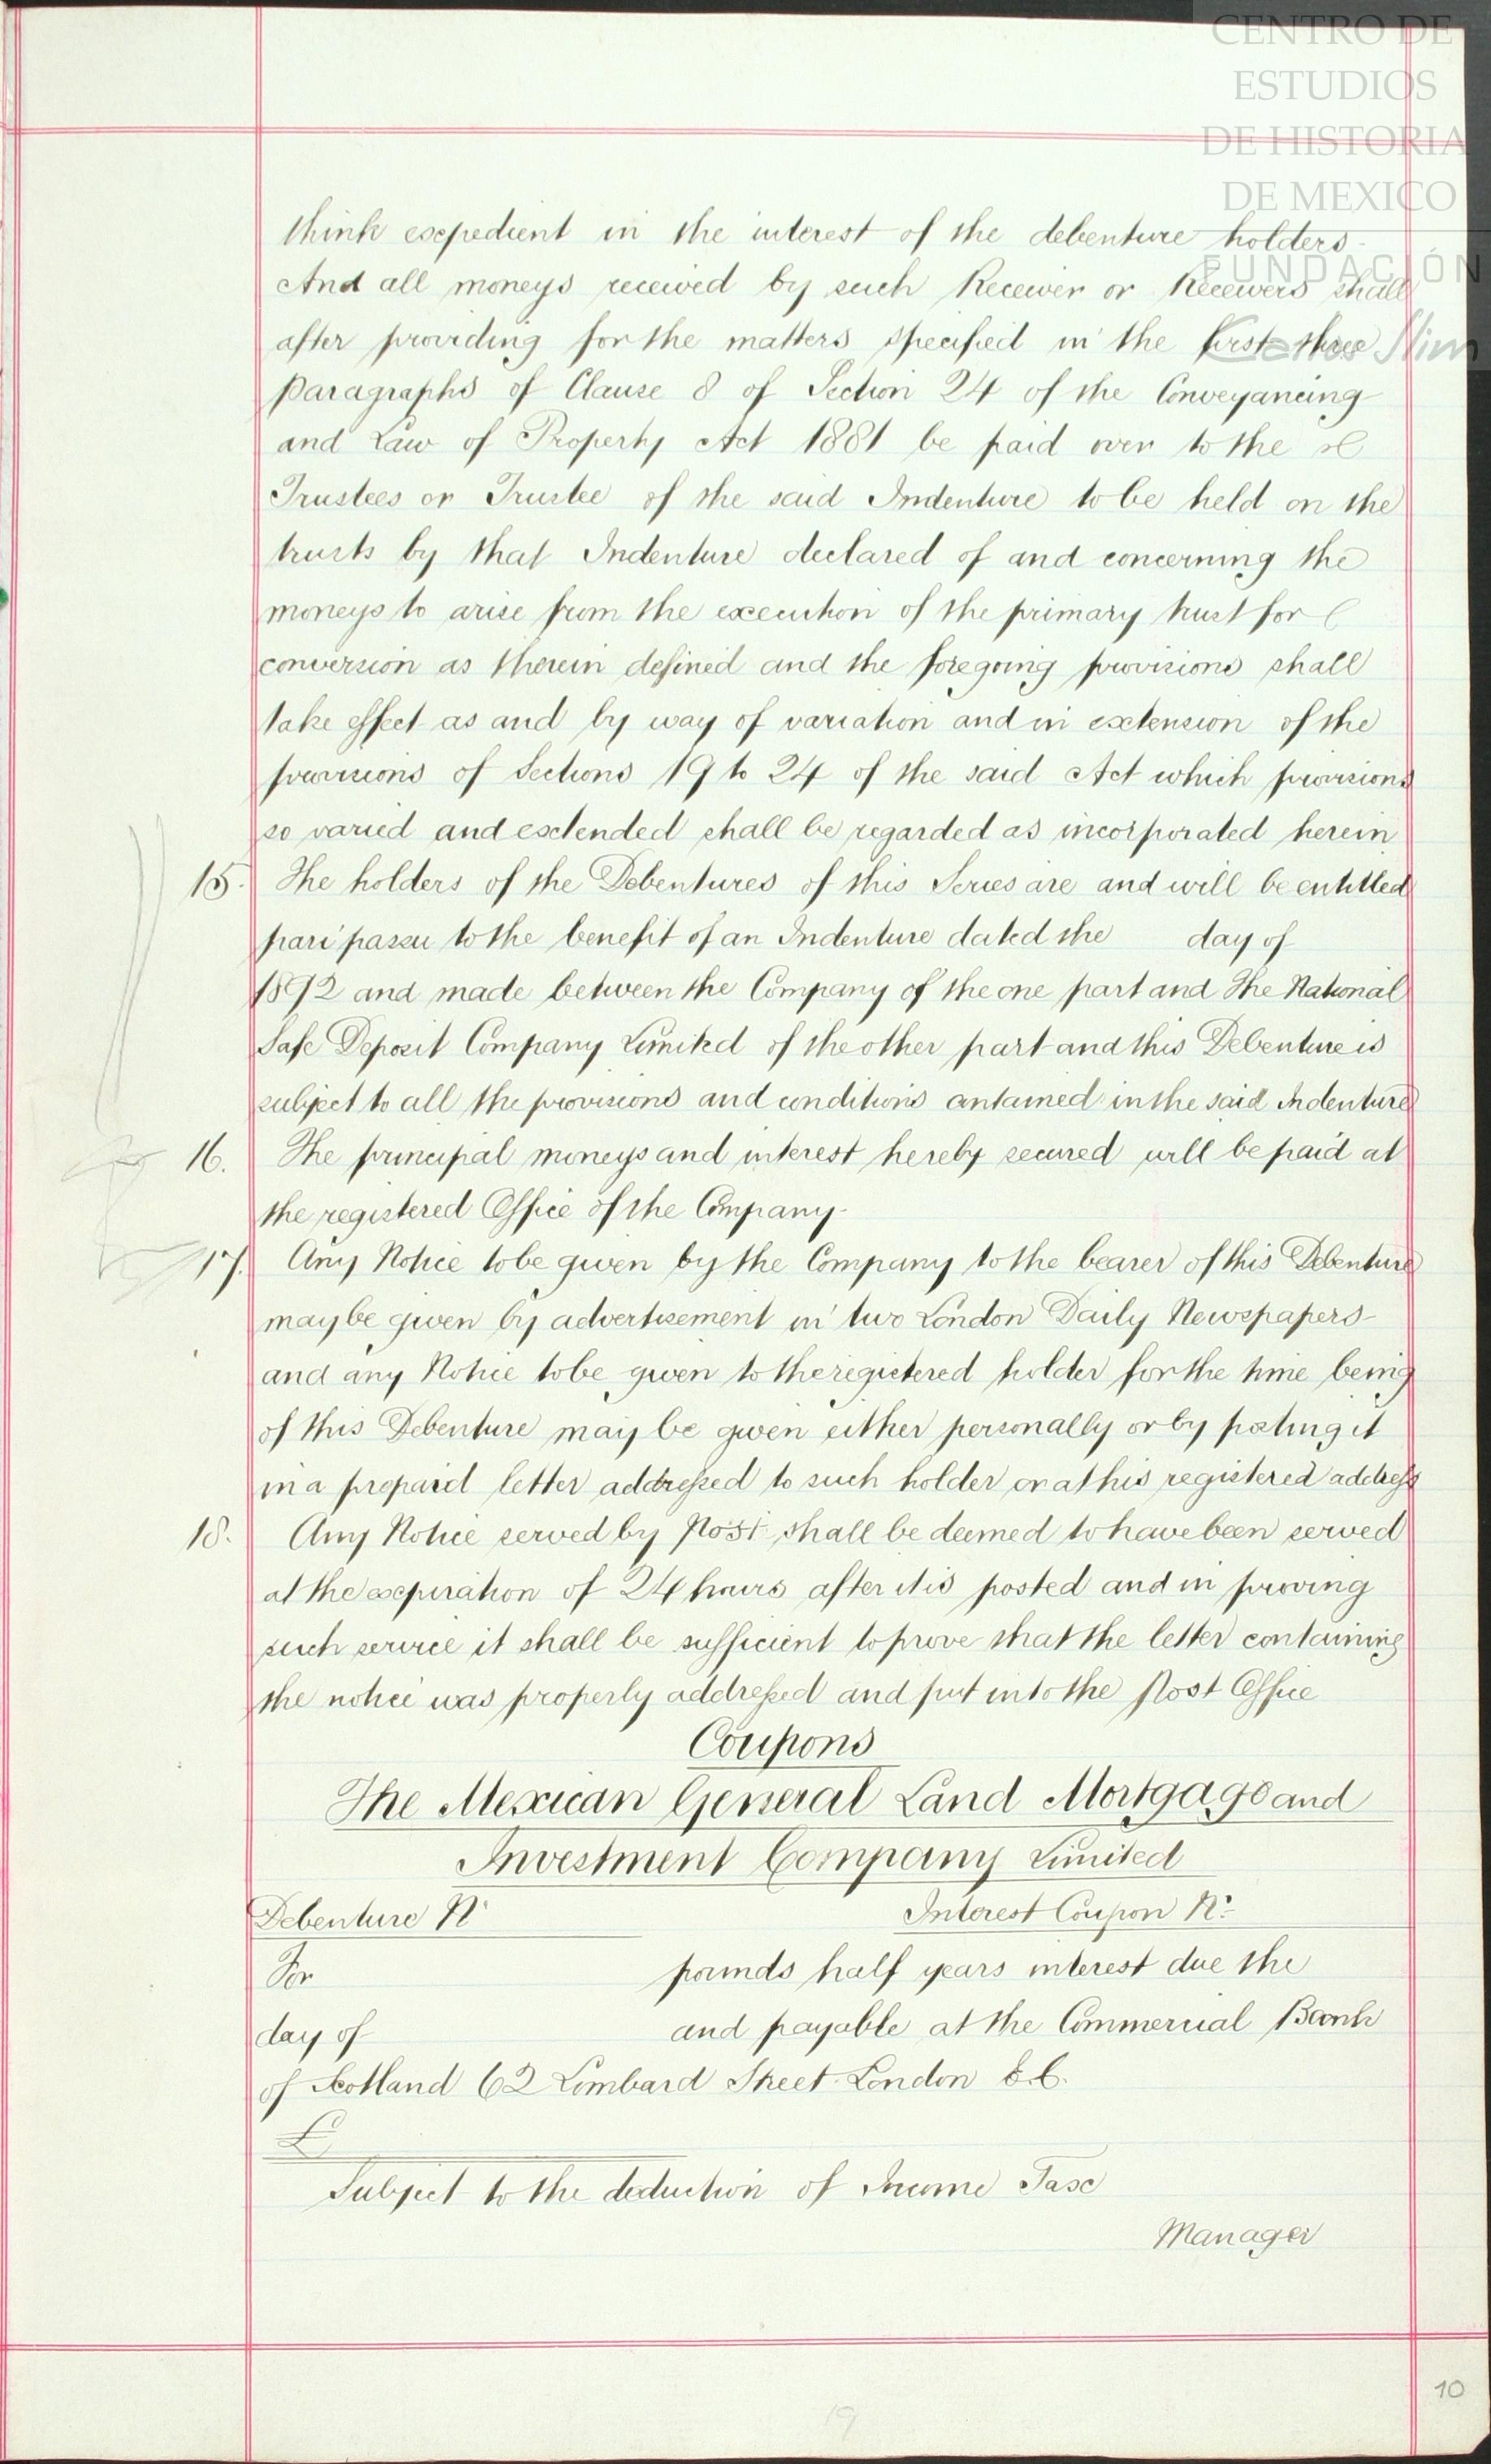 CENTRO DE
ESTUDIOS
DE HISTORIA
DE MEXICO
FUNDACIÓN
Carlos Slim
think expedient in the interest of the debenture holders -
And all moneys received by such Receiver or Receivers shall
after providing for the matters specified in the first three
paragraphs of Clause 8 of Section 24 of the Conveyancing
and Law of Property Act 1881 be paid over to the
Trustees or Trustee of the said Indenture to be held on the
trusts by that Indenture declared of and concerning the
moneys to arise from the execution of the primary trust for
conversion as therein defined and the foregoing provisions shall
take effect as and by way of variation and in extension of the
provisions of Sections 19 to 24 of the said Act which provisions
so varied and extended shall be regarded as incorporated herein
15. The holders of the Debentures of this Series are and will be entitled
pari passu to the benefit of an Indenture dated the day of
1892 and made between the Company of the one part and The National
Safe Deposit Company Limited of the other part and this Debenture is
subject to all the provisions and conditions contained in the said Indenture
16. The principal moneys and interest hereby secured will be paid at
the registered Office of the Company.
17. Any Notice to be given by the Company to the bearer of this Debenture
may be given by advertisement in two London Daily Newspapers -
and any Notice to be given to the registered holder for the time being
of this Debenture may be given either personally or by posting it
in a prepaid letter addressed to such holder or at his registered address
18. Any Notice served by Post shall be deemed to have been served
at the expiration of 24 hours after it is posted and in proving
such service it shall be sufficient to prove that the letter containing
the notice was properly addressed and put into the Post Office
Coupons
The Mexican General Land Mortgage and
Investment Company Limited
Debenture No Interest Coupon No
For pounds half years interest due the
day of and payable at the Commercial Bank
of Scotland 62 Lombard Street London E.C.
£
Subject to the deduction of Income Tax
Manager
10
19